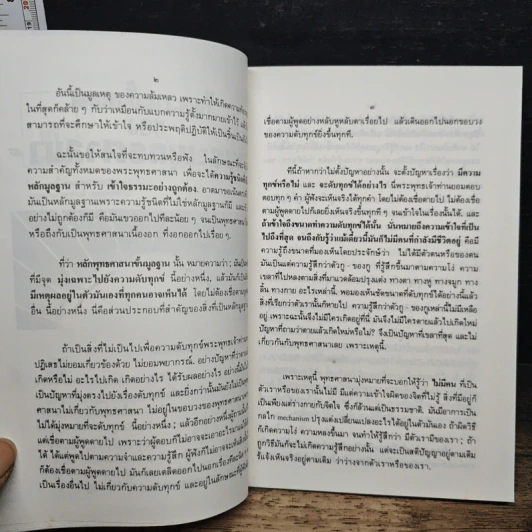 ๒
อันนี้เป็นมูลเหตุ ของความล้มเหลว เพราะทำให้เกิดความ
ในที่สุดก็คล้าย ๆ กับว่าเหมือนกับแบกความรู้ตั้งมากมายเข้าไว้ แล้ว
สามารถที่จะศึกษาให้เข้าใจ หรือประพฤติปฏิบัติให้เป็นชิ้นเป็น
ฉะนั้นขอให้สนใจที่จะทบทวนหรือฟัง ในลักษณะที่จะ
ความสำคัญทั้งหมดของพระพุทธศาสนา เพื่อจะได้ความรู้ชนิดที่
หลักมูลฐาน สำหรับ เข้าใจธรรมะอย่างถูกต้อง อาตมาขอเน้น
เป็นหลักมูลฐานเพราะความรู้ชนิดที่ไม่ใช่หลักมูลฐานก็มี และ
อย่างไม่ถูกต้องก็มี คือมันเขวออกไปทีละน้อย ๆ จนเป็นพุทธศาสนา
หรือถึงกับเป็นพุทธศาสนาเนื้องอก ที่งอกออกไปเรื่อย ๆ
ที่ว่า หลักพุทธศาสนาขั้นมูลฐาน นั้น หมายความว่า ; มัน
ที่มีจุด มุ่งเฉพาะไปยังความดับทุกข์ นี้อย่างหนึ่ง, แล้วมัน
มีเหตุผลอยู่ในตัวมันเองที่ทุกคนอาจเห็นได้ โดยไม่ต้องเชื่อตาม
อื่น นี้อย่างหนึ่ง ; นี่คือส่วนประกอบที่สำคัญของสิ่งที่เป็นหลักมูลฐาน
ถ้าเป็นสิ่งที่ไม่เป็นไปเพื่อความดับทุกข์พระพุทธเจ้าท่าน
ปฏิเสธไม่ยอมเกี่ยวข้องด้วย ไม่ยอมพยากรณ์. อย่างปัญหาที่ว่าตาย
เกิดหรือไม่ อะไรไปเกิด เกิดอย่างไร ได้รับผลอย่างไร อย่างนี้
เป็นปัญหาที่มุ่งตรงไปยังเรื่องดับทุกข์ และยิ่งกว่านั้นมันยังไม่เป็น
ศาสนาไม่เกี่ยวกับพุทธศาสนา ไม่อยู่ในขอบวงของพุทธศาสนา
ไม่ได้มุ่งหมายที่จะดับทุกข์ นี้อย่างหนึ่ง ; แล้วอีกอย่างหนึ่งผู้
แต่เชื่อตามผู้พูดดายไป เพราะว่าผู้ตอบก็ไม่อาจจะเอาอะไรมา
ได้ ได้แต่พูดไปตามความจำและความรู้สึก ผู้ฟังก็ไม่อาจจะเห็น
ก็ต้องเชื่อตามผู้พูดดายไป มันก็เลยเตลิดออกไปนอกเรื่องทีละนิด
เป็นเรื่องอื่นไป ไม่เกี่ยวกับความดับทุกข์ และอยู่ในลักษณะที่ผู้
๓
เชื่อตามผู้พูดอย่างหลับหูหลับตาเรื่อยไป แล้วเดินออกไปนอกขอบวง
ของความดับทุกข์ยิ่งขึ้นทุกที.
ทีนี้ถ้าหากว่าไม่ตั้งปัญหาอย่างนั้น จะตั้งปัญหาเรื่องว่า มีความ
ทุกข์หรือไม่ และ จะดับทุกข์ได้อย่างไร นี่พระพุทธเจ้าท่านยอมตอบ
ตอบทุก ๆ คำ ผู้ฟังก็จะเห็นจริงได้ทุกคำ โดยไม่ต้องเชื่อ ไม่ต้องเชื่อ
ตามผู้พูดดายไปก็เลยยิ่งเห็นจริงขึ้นทุกที ๆ จนเข้าใจในเรื่องนั้นได้. และ
ถ้าเข้าใจถึงขนาดทำความดับทุกข์ได้นั้น นั่นหมายถึงความเข้าใจที่เป็น
ไปถึงที่สุด จนถึงกับรู้ว่าแม้เดี๋ยวนี้มันก็ไม่มีคนที่กำลังมีชีวิตอยู่ คือมี
ความรู้ถึงขนาดที่มองเห็นโดยประจักษ์ว่า ไม่ได้มีตัวตนหรือของตน
มันเป็นแต่ความรู้สึกว่าตัวกู - ของกู ที่รู้สึกขึ้นมาตามความโง่ ความ
เขลาที่ไปหลงตามสิ่งที่มาแวดล้อมปรุงแต่ง ทางตา ทางหู ทางจมูก ทาง
ลิ้น ทางกาย อะไรเหล่านี้. พอมองเห็นชัดขนาดที่ดับทุกข์ได้อย่างนี้แล้ว
สิ่งที่เรียกว่าตัวเรานั้นก็หายไป ความรู้สึกว่าตัวกู - ของกูเหล่านี้ไม่มีเหลือ
อยู่ เพราะฉะนั้นจึงไม่มีใครเกิดอยู่ที่นี่ มันจึงไม่มีใครตายแล้วไปเกิดใหม่
ปัญหาที่ถามว่าตายแล้วเกิดใหม่หรือไม่? จึงเป็นปัญหาที่เขลาที่สุด และไม่
เกี่ยวกันกับพุทธศาสนาเลย เพราะเหตุนี้.
เพราะเหตุนี้ พุทธศาสนามุ่งหมายที่จะบอกให้รู้ว่า ไม่มีคน ที่เป็น
ตัวเราหรือของเรานั้นไม่มี มีแต่ความเข้าใจผิดของจิตที่ไม่รู้ สิ่งที่มีอยู่ก็
เป็นเพียงแต่ร่างกายกับจิตใจ ซึ่งก็ล้วนแต่เป็นธรรมชาติ. มันมีอาการเป็น
กลไก mechanism ปรุงแต่งเปลี่ยนแปลงอะไรได้อยู่ในตัวมันเอง ถ้าผิดวิธี
ก็เกิดความโง่ ความหลงขึ้นมา จนทำให้รู้สึกว่า มีตัวเรามีของเรา ; ถ้า
ถูกวิธีมันก็จะไม่เกิดความรู้สึกอย่างนั้น แต่จะเป็นสติปัญญาอยู่ตามเดิม
รู้แจ้งเห็นจริงอยู่ตามเดิม ว่าว่างจากตัวเราหรือของเรา.